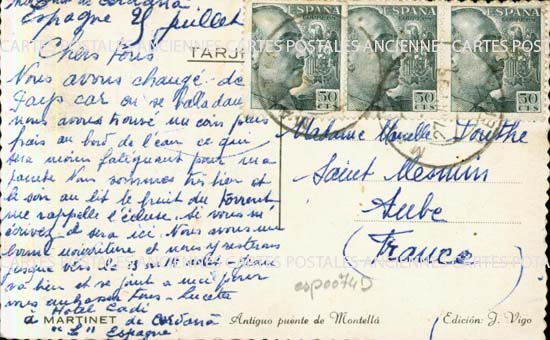 Espagne 25 juillet
Chers tous
Nous avons changé de
Pays car on se baladau
nous avons trouvé un coin plus
frais au bord de l'eau ce qui
sera moins fatiguant pour ma
santé Nous sommes très bien et
le soir au lit le bruit du torrent
me rappelle l'écluse. Si vous m'
écrivez ce sera ici. Nous avons une
bonne nourriture et nous y resterons
jusque vers le 13 ou 14
va bien et se joint a moi pour
vous embrasser tous - Lucette
Hotel Cadi
à MARTINET de Cerdaña
"L" Espagne
TARJ
ESPAÑA
CORREOS
50
CTS
ESPAÑA
CORREOS
50
CTS
ESPAÑA
CORREOS
50
CTS
Madame
Saint Mesmin
Aube
(France)
esp0074D
Antiguo puente de Montellá
Edición: J. Vigo
CARTES POSTALES ANCIENNES CARTES POSTALES ANCIENNES